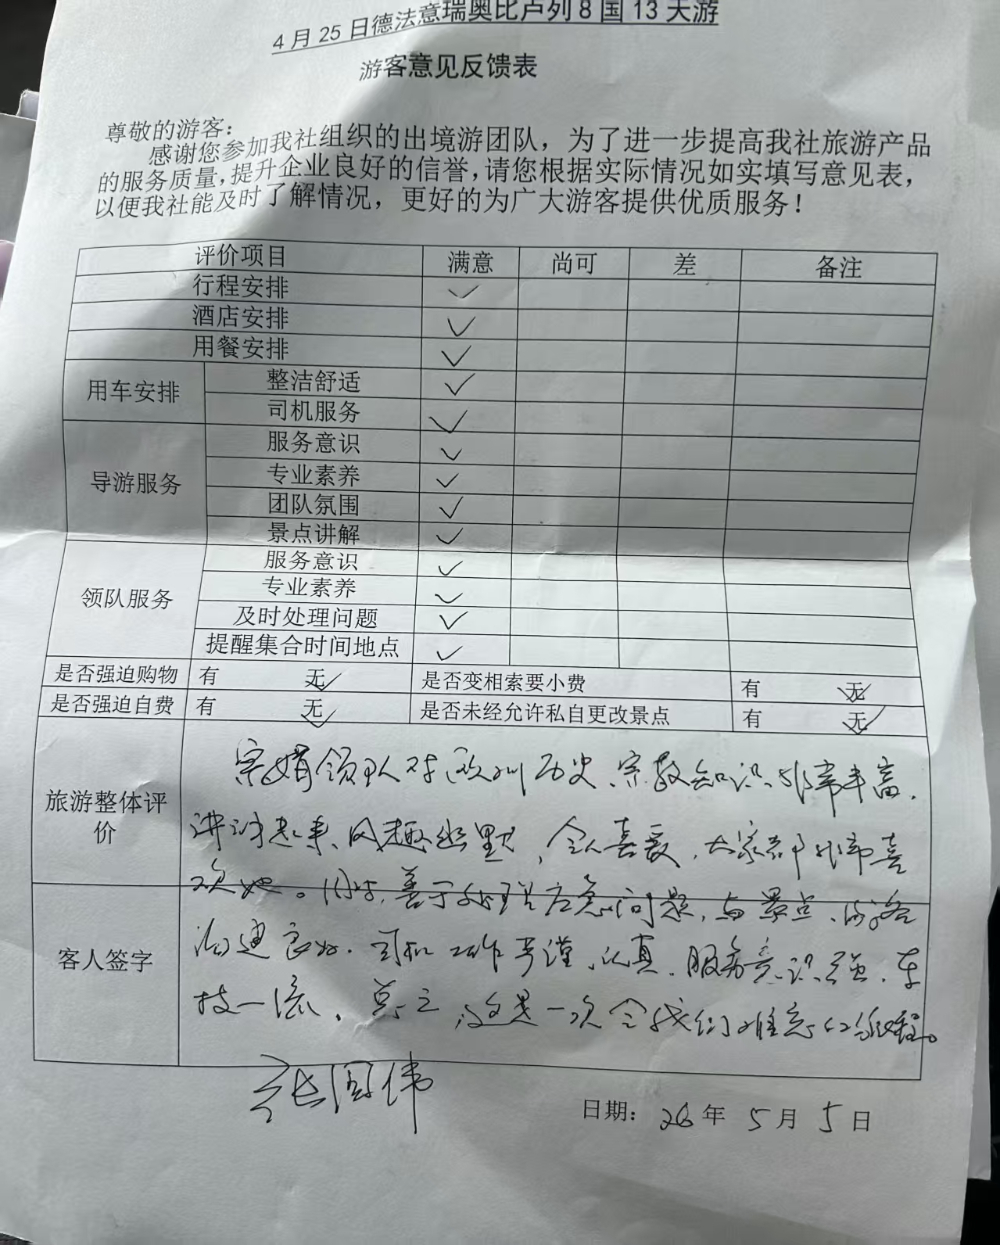 4月25日德法意瑞奥比卢列8国13天游
游客意见反馈表
尊敬的游客：
感谢您参加我社组织的出境游团队，为了进一步提高我社旅游产品
的服务质量，提升企业良好的信誉，请您根据实际情况如实填写意见表，
以便我社能及时了解情况，更好的为广大游客提供优质服务！
评价项目 满意 尚可 差 备注
行程安排 ✓
酒店安排 ✓
用餐安排 ✓
用车安排 整洁舒适 ✓
司机服务 ✓
导游服务 服务意识 ✓
专业素养 ✓
团队氛围 ✓
景点讲解 ✓
领队服务 服务意识 ✓
专业素养 ✓
及时处理问题 ✓
提醒集合时间地点 ✓
是否强迫购物 有 无✓ 是否变相索要小费 有 无✓
是否强迫自费 有 无✓ 是否未经允许私自更改景点 有 无✓
旅游整体评价
领队对欧洲历史、宗教知识非常丰富，
讲述起来风趣幽默，令人喜爱，大家都非常喜
欢她。同时，善于处理应急问题，与景点、游客
沟通良好。司机工作严谨、认真，服务意识强，车
技一流。总之，这是一次令我们难忘的旅程。
客人签字
张国伟
日期：26年5月5日